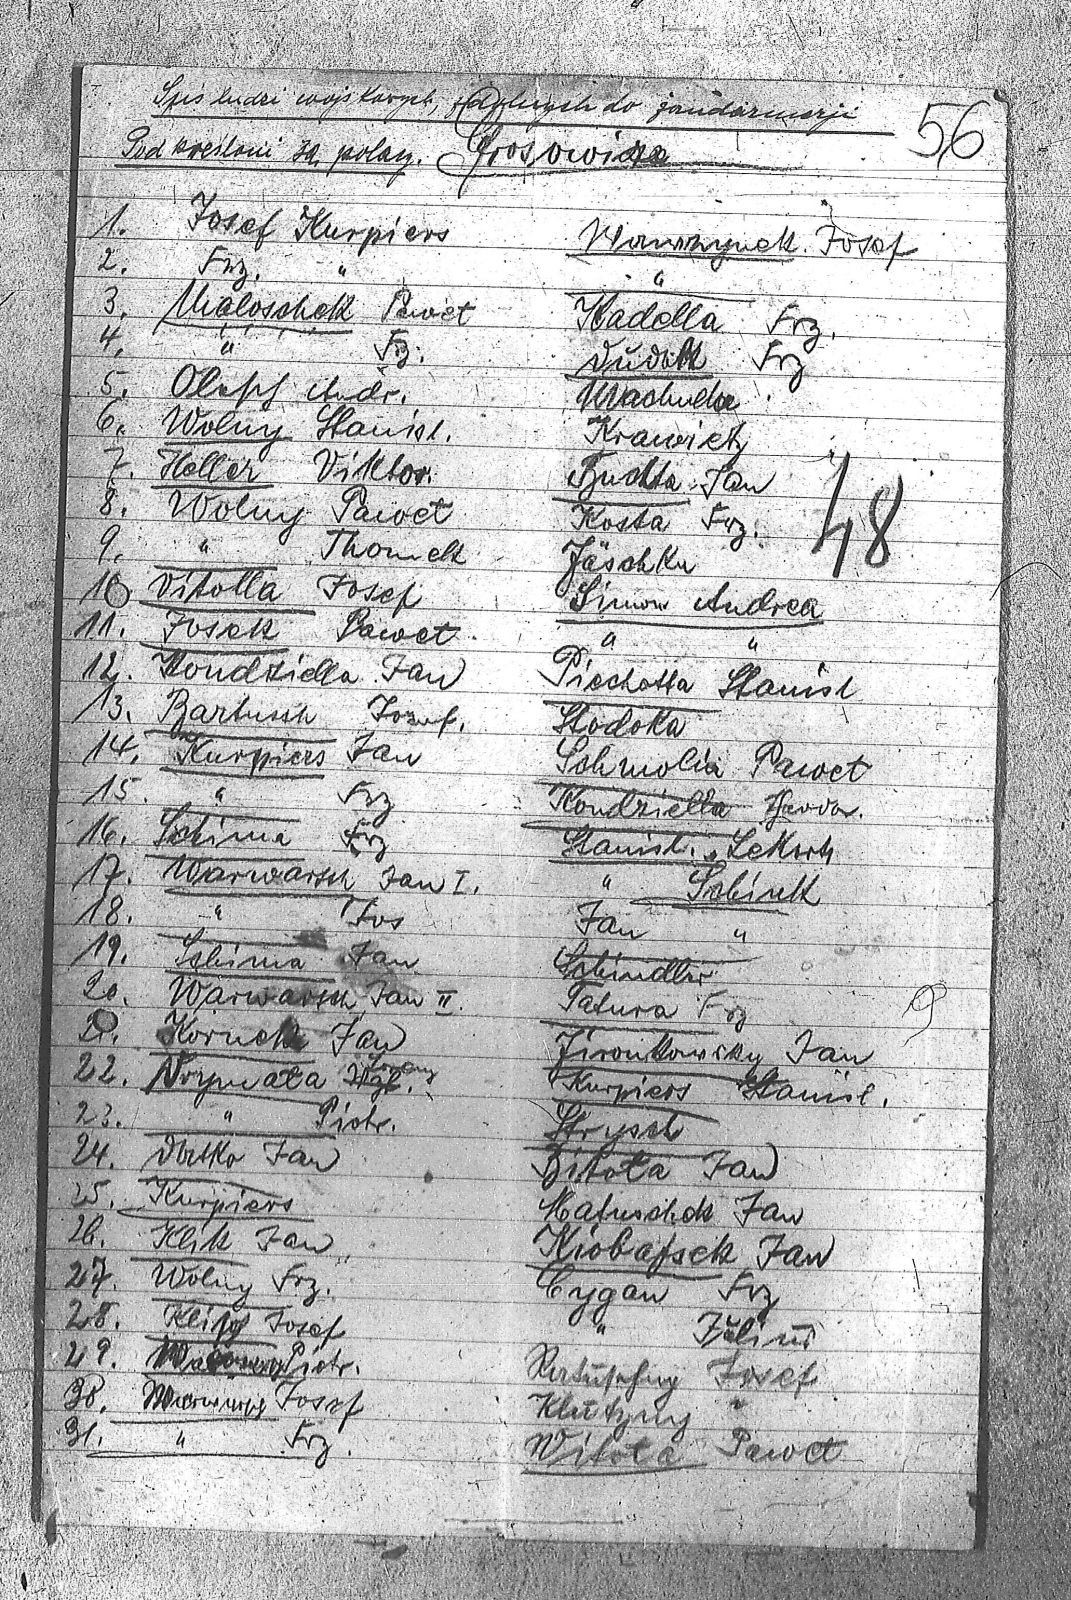 Spis ludzi wojskowych, zdolnych do żandarmerji
56
Podkreśleni są polacy. Grosowica
1. Josef Kurpiers
2. Frz. "
3. Maloschek Paweł
4. " Frz.
5. Andr.
6. Wolny Stanisl.
7. Heller Viktor.
8. Wolny Paweł
9. " Thomek
10 Vitolla Josef
11. Josek Paweł
12. Kondziella Jan
13. Bartusch Jozef.
14. Kurpiers Jan
15. " Frz
16. Schima Frz
17. Warwarsch Jan I.
18. " Jos
19. Schima Jan
20. Warwarsch Jan II.
21. Jan
22.
23. " Piotr.
24. Jan
25. Kurpiers
26. Klik Jan
27. Wolny Frz.
28. Josef
29. Piotr.
30. Josef
31. " Frz.
Josef
"
Kadella Frz.
Dudek Frz
Machula
Krawietz
Buchta Jan
Kosta Frz.
48
Jäschke
Simon Andrea
" "
Piechotta Stanisl
Stodoka
Schmolia Paweł
Kondziella
Stanisl.
" Schinek
Jan "
Schindler
Patura Frz
Jan
Kurpiers Stanisl.
Strysch
Zitola Jan
Matuschek Jan
Jan
Cygan Frz
"
Josef
Klutzny "
Witola Paweł